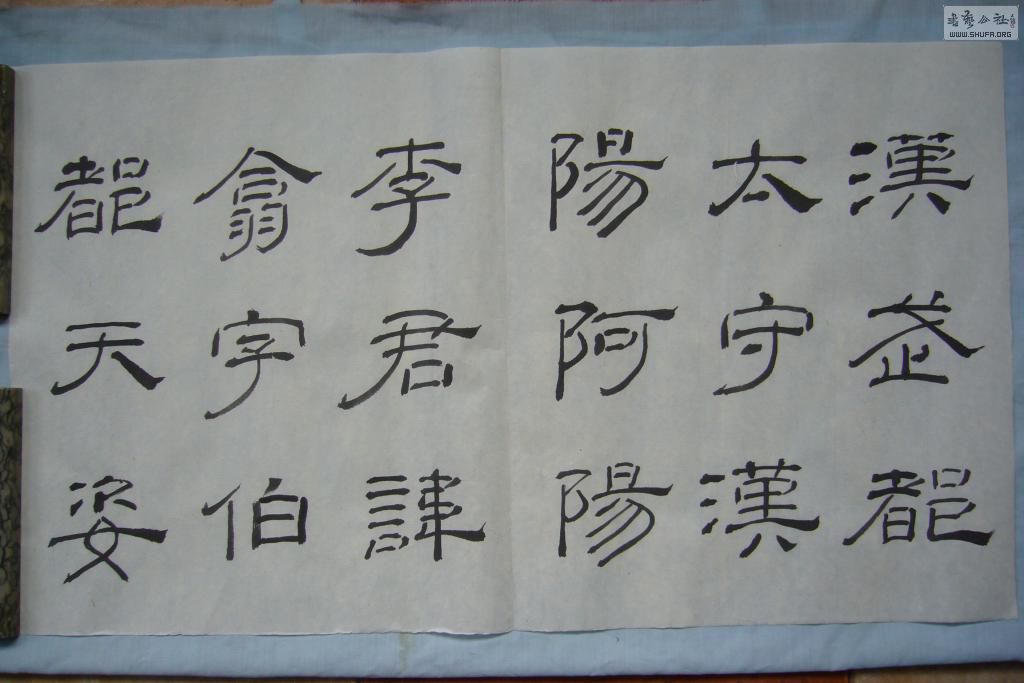 漢武都
太守漢
陽阿陽
李君諱
翕字伯
都天姿
書藝公社
WWW.SHUFA.ORG